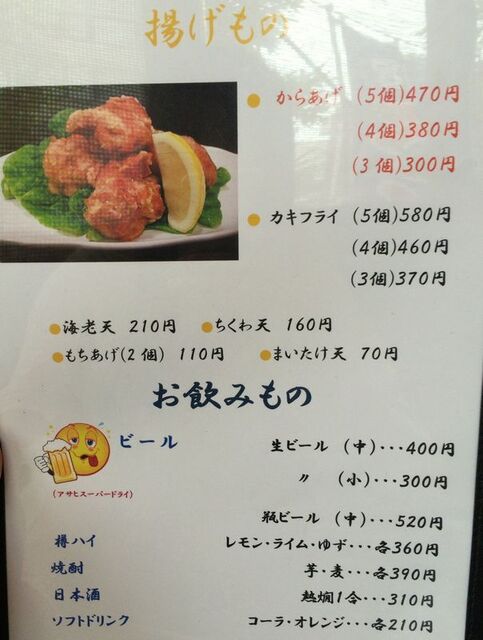 揚げもの
からあげ (5個)470円
(4個)380円
(3個)300円
カキフライ (5個)580円
(4個)460円
(3個)370円
海老天 210円 ちくわ天 160円
もちあげ(2個) 110円 まいたけ天 70円
お飲みもの
ビール 生ビール (中)・・・400円
〃 (小)・・・300円
(アサヒスーパードライ)
瓶ビール (中)・・・520円
樽ハイ レモン・ライム・ゆず・・・各360円
焼酎 芋・麦・・・各390円
日本酒 熱燗1合・・・310円
ソフトドリンク コーラ・オレンジ・・・各210円